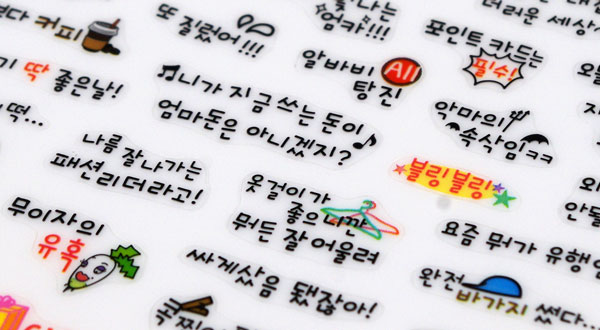 커피
또 질렀어!!!
엄카!!!
더러운 세상
딱 좋은날!
알바비 All
탕진
포인트 카드는
필수!
♬니가 지금 쓰는 돈이
엄마돈은 아니겠지?♪
악마의
속삭임ㅋㅋ
떡...
나름 잘나가는
패션리더라고!
블링블링
옷걸이가
좋으니깐
뭐든 잘 어울려
무이자의
유혹
요즘 뭐가 유행
싸게샀음 됐잖아!
완전
바가지 썼다...